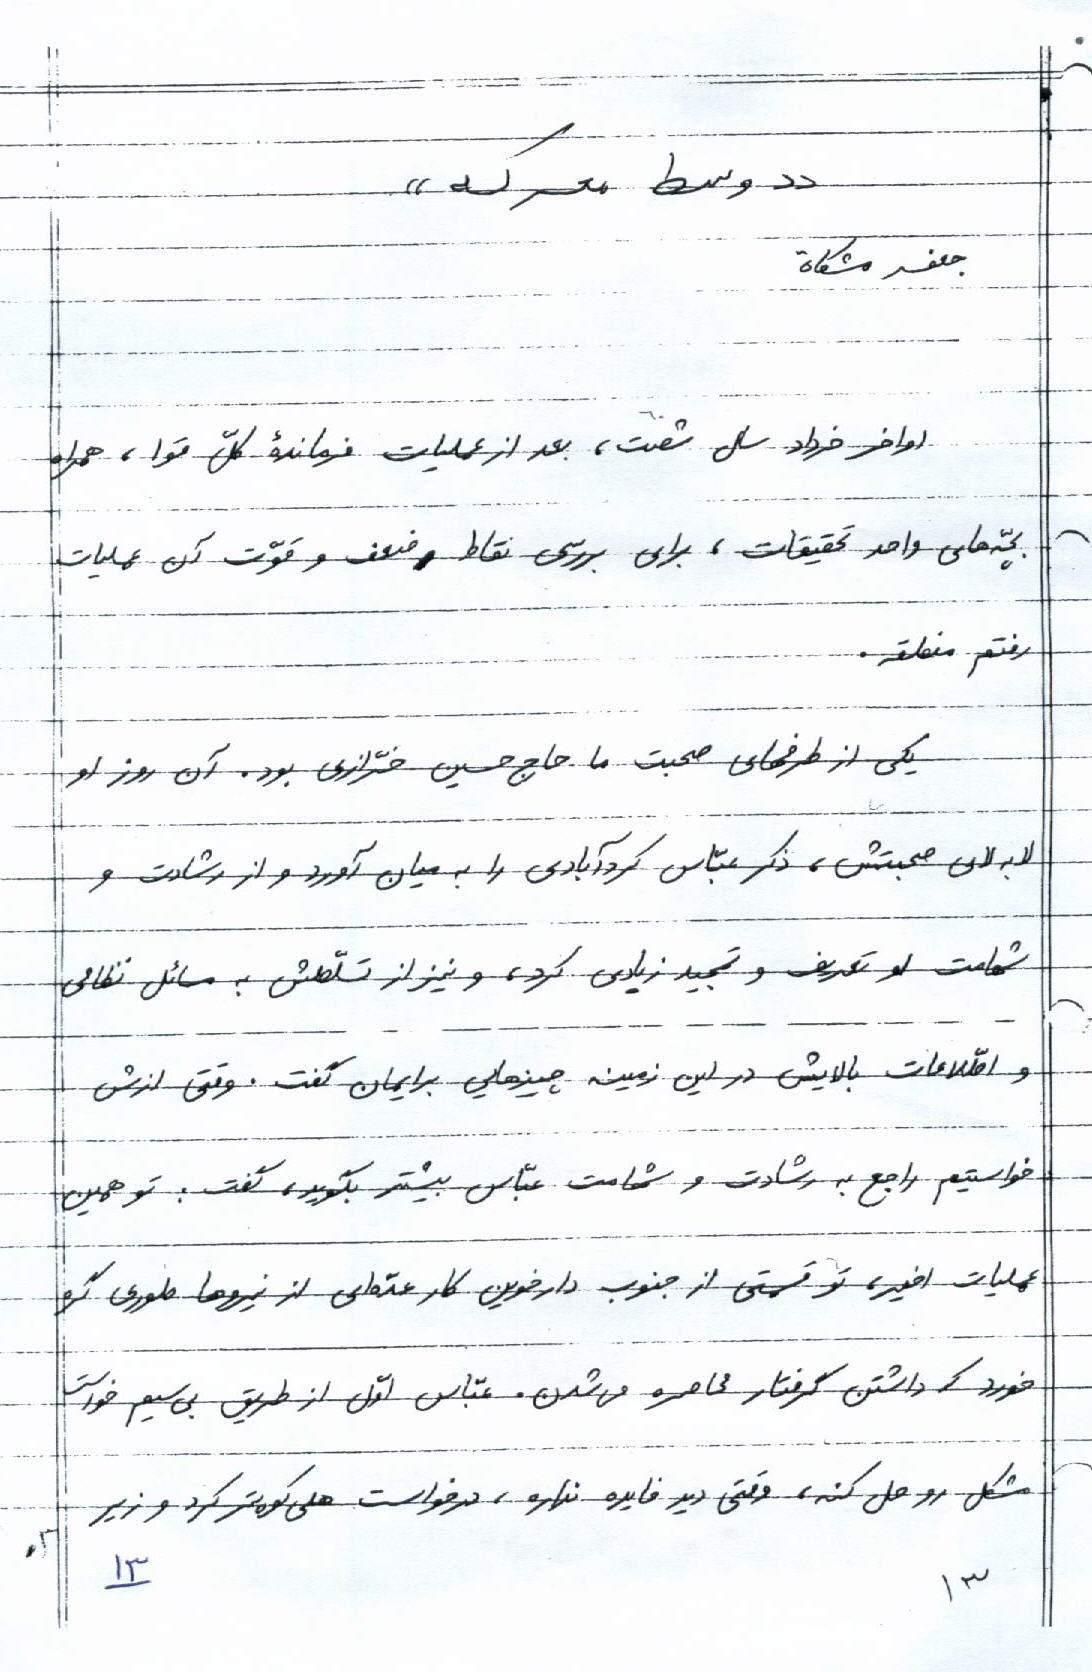 «وسط معرکه»
جعفر مشکاة
اواخر خرداد سال شصت، بعد از عملیات فرماندهٔ کلّ قوا، همراه
بچّه‌های واحد تحقیقات، برای بررسی نقاط ضعف و قوّت آن عملیات
رفتم منطقه.
یکی از طرفهای صحبت ما حاج حسین خرّازی بود. آن روز او
لابه لای صحبتش، ذکر عبّاس کردآبادی را به میان آورد و از رشادت و
شهامت او تعریف و تمجید زیادی کرد، و نیز از تسلّطش به مسائل نظامی
و اطّلاعات بالایش در این زمینه چیزهایی برایمان گفت. وقتی ازش
خواستیم راجع به رشادت و شهامت عبّاس بیشتر بگوید، گفت: تو همین
عملیات اخیر، تو قسمتی از جنوب دارخوین کار عدّه‌ای از نیروها طوری گره
خورد که داشتن گرفتار محاصره می‌شدن. عبّاس اوّل از طریق بی‌سیم خواست
مشکل رو حل کنه، وقتی دید فایده نداره، درخواست هلی‌کوپتر کرد و زیر
۱۳
۱۳